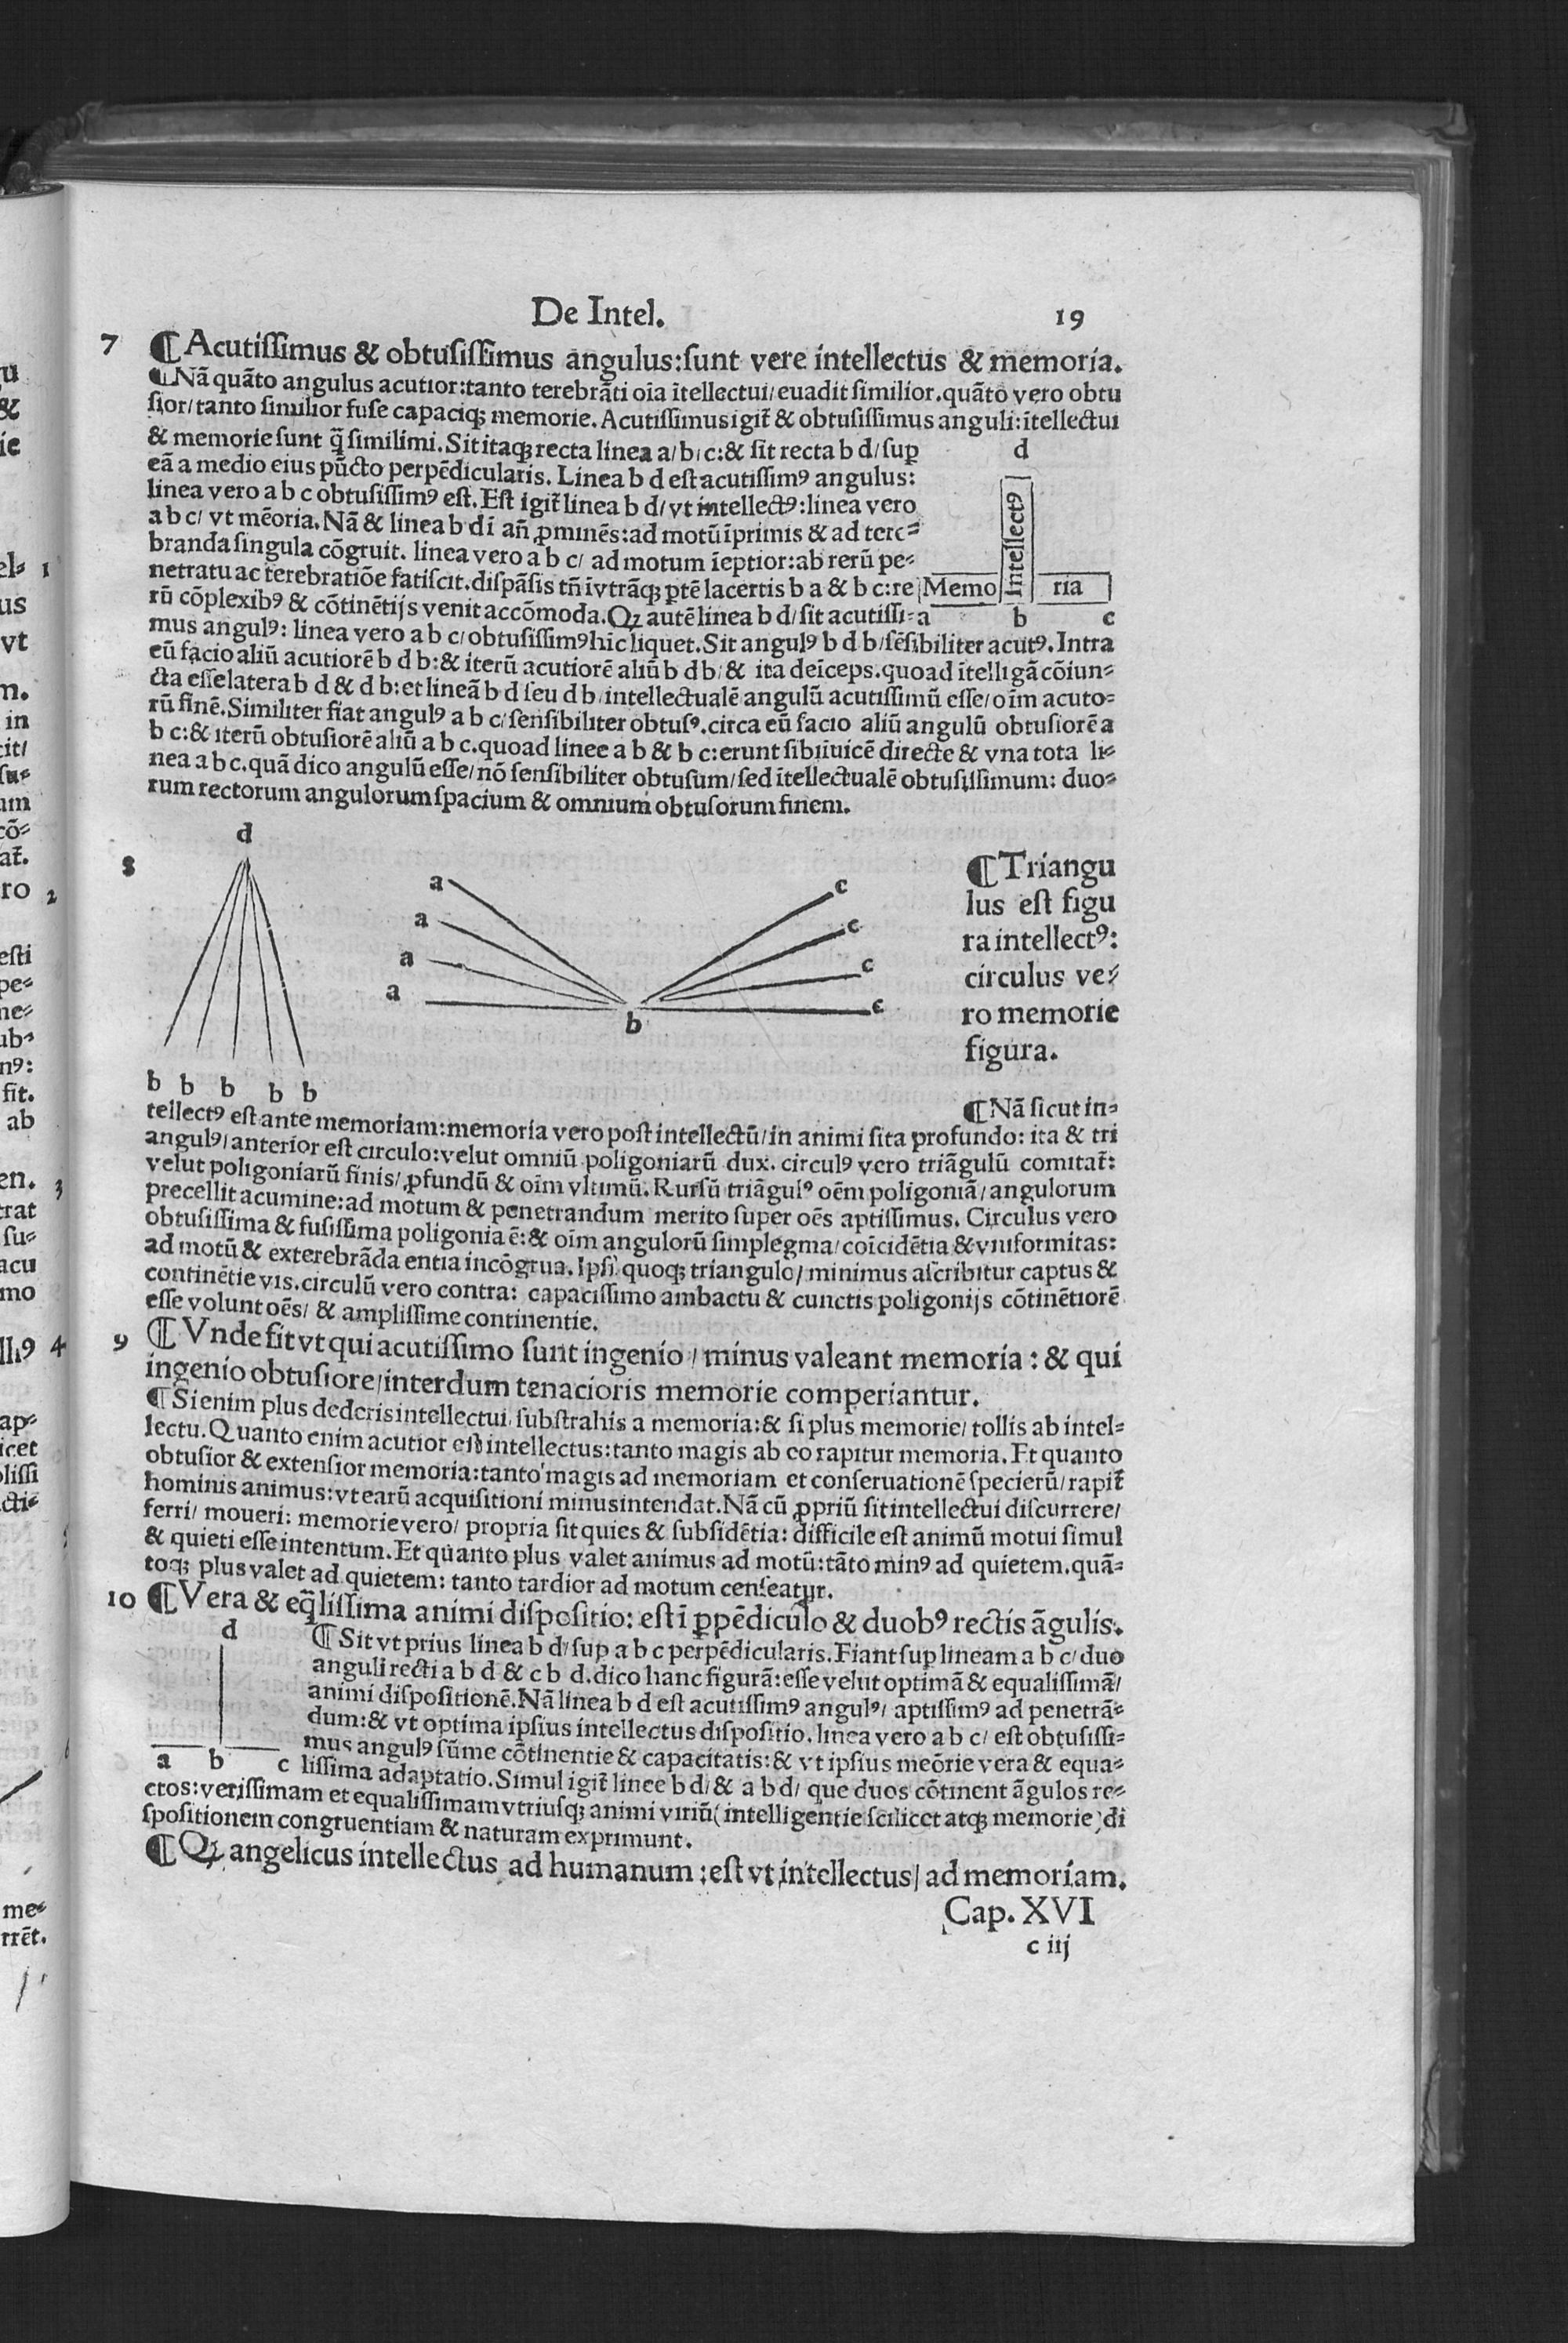 De Intel. 19
7 ¶Acutissimus & obtusissimus angulus: sunt vere intellectus & memoria.
¶Nā quāto angulus acutior: tanto terebrāti oīa ītellectui/ euadit similior. quāto vero obtu
sior/ tanto similior fuse capaciqꝫ memorie. Acutissimus igit̄ & obtusissimus anguli: ītellectui
& memorie sunt q̄ȝ similimi. Sit itaqꝫ recta linea a/ b/ c: & sit recta b d/ suꝑ
eā a medio eius pūcto perpēdicularis. Linea b d est acutissimꝰ angulus:
linea vero a b c obtusissimꝰ est. Est igit̄ linea b d/ vt intellectꝰ: linea vero
a b c/ vt mēoria. Nā & linea b d ī añ ꝓminēs: ad motū īprimis & ad tere=
branda singula cōgruit. linea vero a b c/ ad motum īeptior: ab rerū pe=
netratu ac terebratiōe fatiscit. dispāsis tñ ī vtrāqꝫ ꝑtē lacertis b a & b c: re
rū cōplexibꝰ & cōtinētijs venit accōmoda. Qꝫ autē linea b d/ sit acutissi=
d
Intellectꝰ
Memo ria
a b c
mus angulꝰ: linea vero a b c/ obtusissimꝰ hic liquet. Sit angulꝰ b d b/ sēsibiliter acutꝰ. Intra
eū facio aliū acutiorē b d b: & iterū acutiorē aliū b d b/ & ita deīceps. quoad ītelligā cōiun=
cta esse latera b d & d b: et lineā b d seu d b/ intellectualē angulū acutissimū esse/ oīm acuto=
rū finē. Similiter fiat angulꝰ a b c/ sensibiliter obtusꝰ. circa eū facio aliū angulū obtusiorē a
b c: & iterū obtusiorē aliū a b c. quoad linee a b & b c: erunt sibiīuicē directe & vna tota li=
nea a b c. quā dico angulū esse/ nō sensibiliter obtusum/ sed ītellectualē obtusissimum: duo=
rum rectorum angulorum spacium & omnium obtusorum finem.
d
b b b b b
a a a a
b
c c c c
8 ¶Triangu
lus est figu
ra intellectꝰ:
circulus ve=
ro memorie
figura.
¶Nā sicut in=
tellectꝰ est ante memoriam: memoria vero post intellectū/ in animi sita profundo: ita & tri
angulꝰ/ anterior est circulo: velut omniū poligoniarū dux. circulꝰ vero triāgulū comitat̄:
velut poligoniarū finis/ ꝓfundū & oīm vltimū. Rursū triāgulꝰ oēm poligoniā/ angulorum
precellit acumine: ad motum & penetrandum merito super oēs aptissimus. Circulus vero
obtusissima & fusissima poligonia ē: & oīm angulorū simplegma/ coīcidētia & vniformitas:
ad motū & exterebrāda entia incōgrua. Ipsi quoqꝫ triangulo/ minimus ascribitur captus &
continētie vis. circulū vero contra: capacissimo ambactu & cunctis poligonijs cōtinētiorē
esse volunt oēs/ & amplissime continentie.
9 ¶Vnde fit vt qui acutissimo sunt ingenio/ minus valeant memoria: & qui
ingenio obtusiore/ interdum tenacioris memorie comperiantur.
¶Si enim plus dederis intellectui/ substrahis a memoria: & si plus memorie/ tollis ab intel=
lectu. Quanto enim acutior est intellectus: tanto magis ab eo rapitur memoria. Et quanto
obtusior & extensior memoria: tanto magis ad memoriam et conseruationē specierū/ rapit̄
hominis animus: vt earū acquisitioni minus intendat. Nā cū ꝓpriū sit intellectui discurrere/
ferri/ moueri: memorie vero/ propria sit quies & subsidētia: difficile est animū motui simul
& quieti esse intentum. Et quanto plus valet animus ad motū: tāto minꝰ ad quietem. quā=
toqꝫ plus valet ad quietem: tanto tardior ad motum censeatur.
10 ¶Vera & eq̄lissima animi dispositio: est ī ꝑpēdiculo & duobꝰ rectis āgulis.
d
a b c
¶Sit vt prius linea b d/ suꝑ a b c perpēdicularis. Fiant suꝑ lineam a b c/ duo
anguli recti a b d & c b d. dico hanc figurā: esse velut optimā & equalissimā/
animi dispositionē. Nā linea b d est acutissimꝰ angulꝰ/ aptissimꝰ ad penetrā=
dum: & vt optima ipsius intellectus dispositio. linea vero a b c/ est obtusissi=
mus angulꝰ sūme cōtinentie & capacitatis: & vt ipsius meōrie vera & equa=
lissima adaptatio. Simul igit̄ linee b d/ & a b d/ que duos cōtinent āgulos re=
ctos: verissimam et equalissimam vtriusqꝫ animi viriū (intelligentie scilicet atqꝫ memorie) di
spositionem congruentiam & naturam exprimunt.
¶Qꝫ angelicus intellectus ad humanum: est vt intellectus/ ad memoriam.
Cap. XVI
c iij